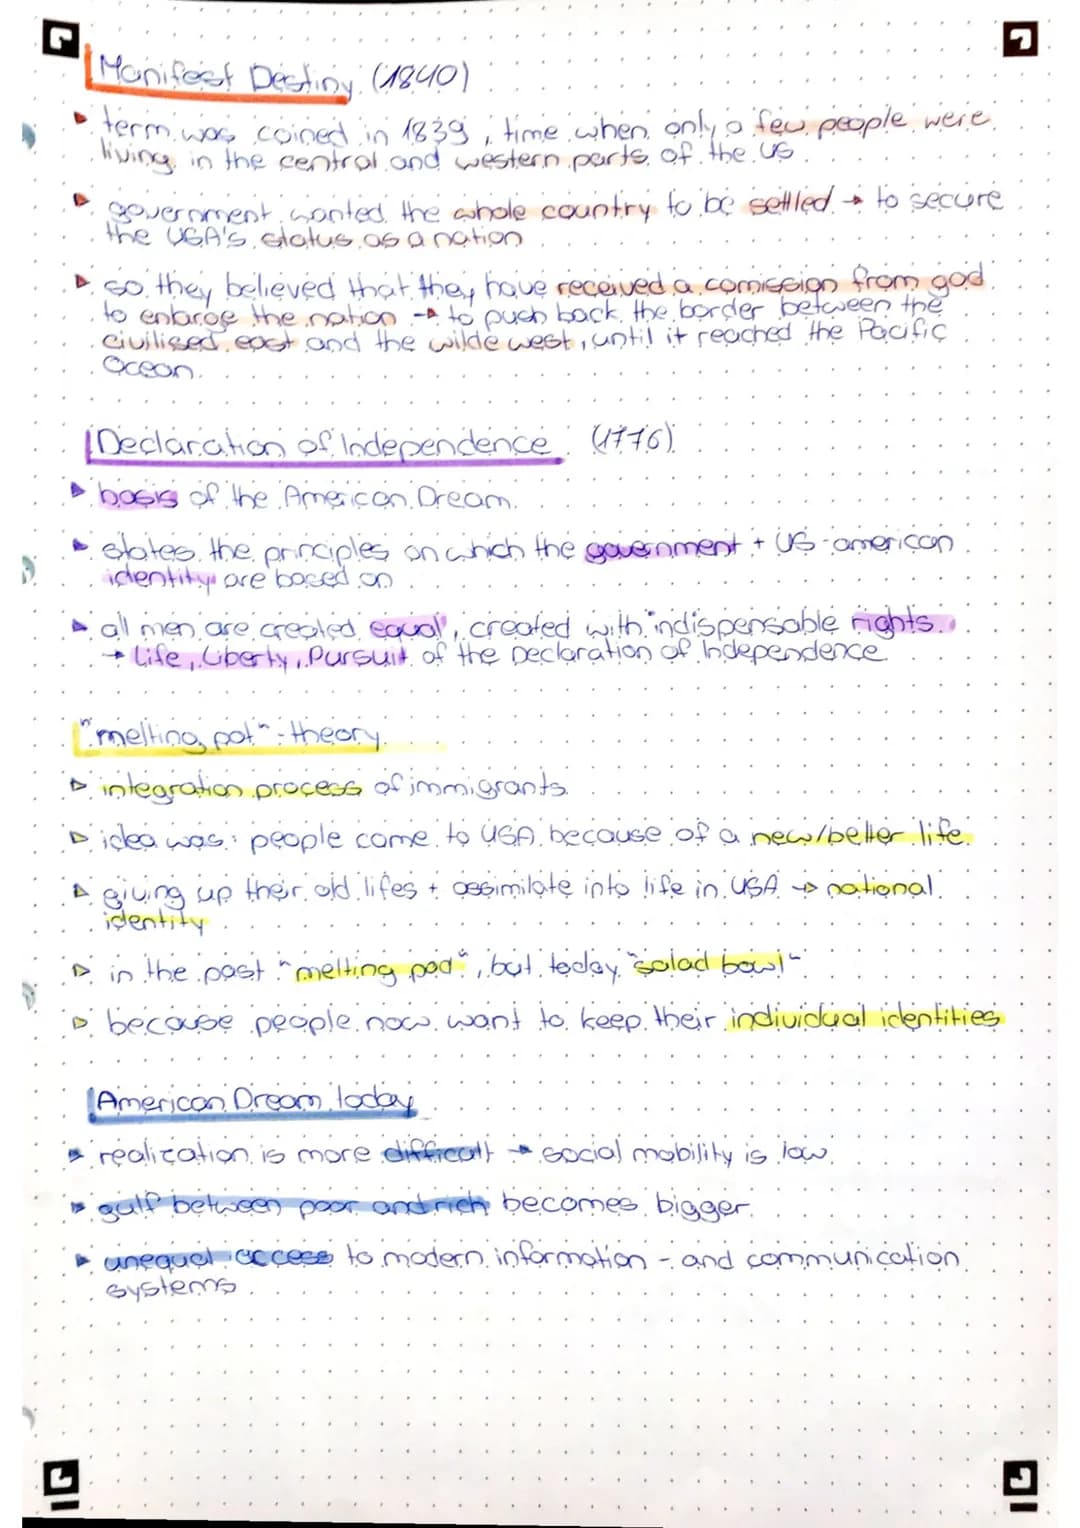 Manifest Destiny (1840)
term was coined in 1839, time when only a few people were
living in the central and western parts of the US
government wanted the whole country to be settled → to secure
the USA's status as a nation
so they believed that they have received a comission from god
to enlarge the nation → to push back the border between the
civilised east and the wilde west, until it reached the Pacific
Ocean.
Declaration of Independence (1776)
basis of the American Dream.
states the principles on which the government + US-american
identity are based on
all men are created equal, created with indispensable rights.
→ Life, Liberty, Pursuit of the Declaration of Independence
"melting pot"-theory
integration process of immigrants
idea was: people come to USA because of a new/better life.
giving up their old lifes + assimilate into life in USA → national
identity
in the past "melting pod", but today "salad bowl"
because people now want to keep their individual identities
American Dream today
realization is more difficult → social mobility is low
gulf between poor and rich becomes bigger.
unequal access to modern information - and communication
systems